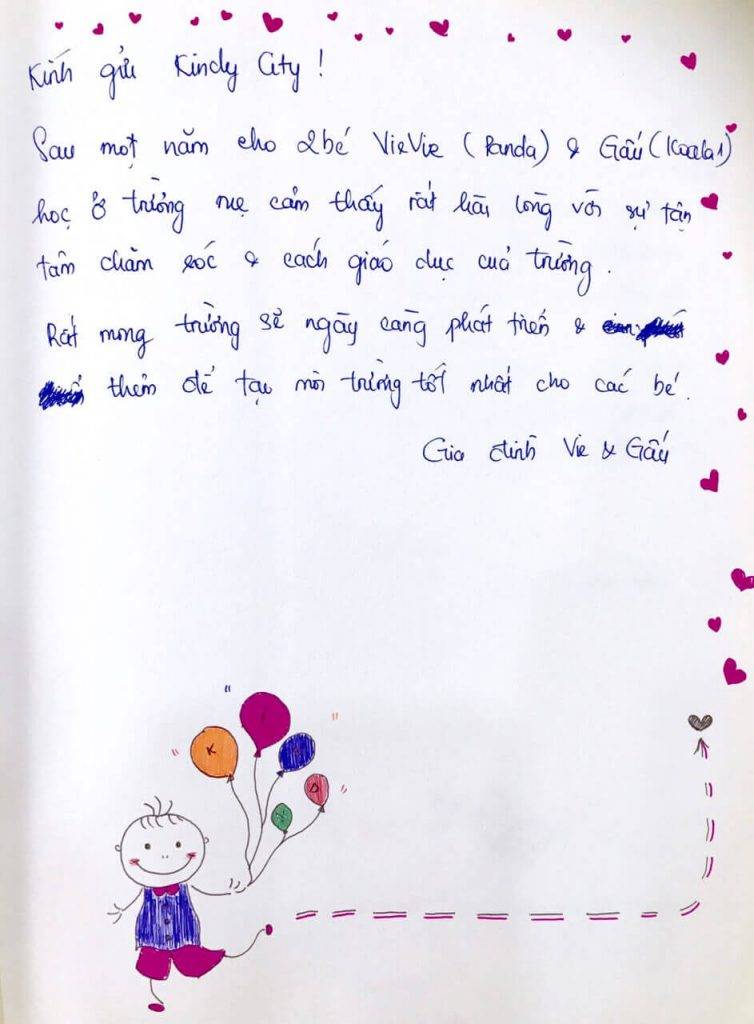 Kính gửi Kindy City !
Sau một năm cho 2 bé VieVie (Panda) & Gấu (Koala1)
học ở trường mẹ cảm thấy rất hài lòng với sự tận
tâm chăm sóc & cách giáo dục của trường.
Rất mong trường sẽ ngày càng phát triển &
thêm để tạo môi trường tốt nhất cho các bé.
Gia đình Vie & Gấu
K
D
Y